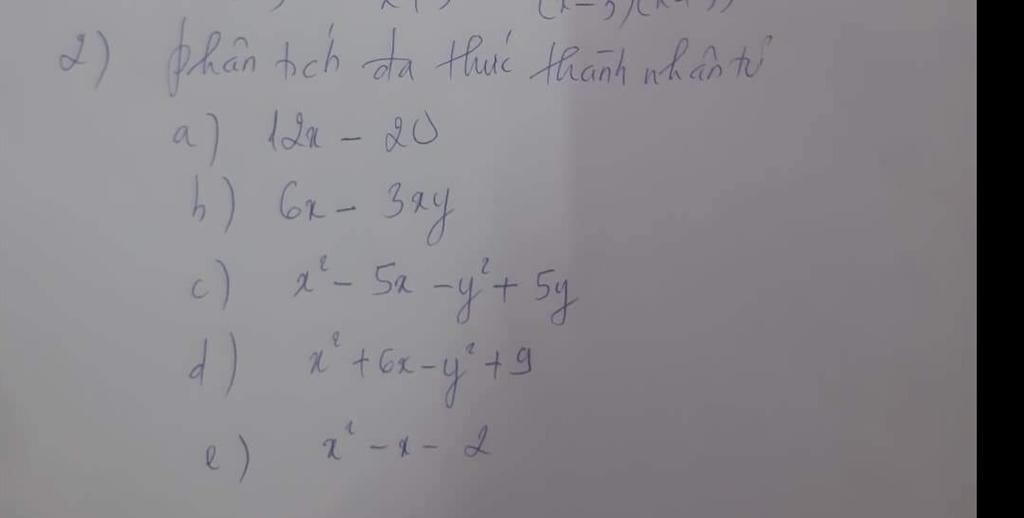 2) phân tích đa thức thành nhân tử
a) 12x - 20
b) 6x - 3xy
c) x² - 5x - y² + 5y
d) x² + 6x - y² + 9
e) x² - x - 2